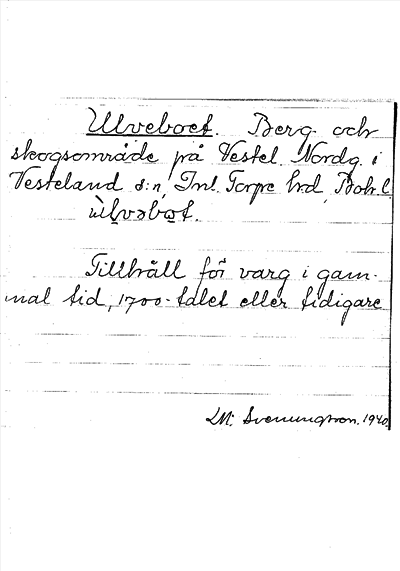 Ulveboet. Berg och
skogsområde på Vestel. Nordg. i
Vesteland s:n, Inl. Torpe hrd, Boh. l.
ùl̥vəbo̤t.
Tillhåll för varg i gam-
mal tid, 1700-talet eller tidigare
LM: Svenungsson. 1940.